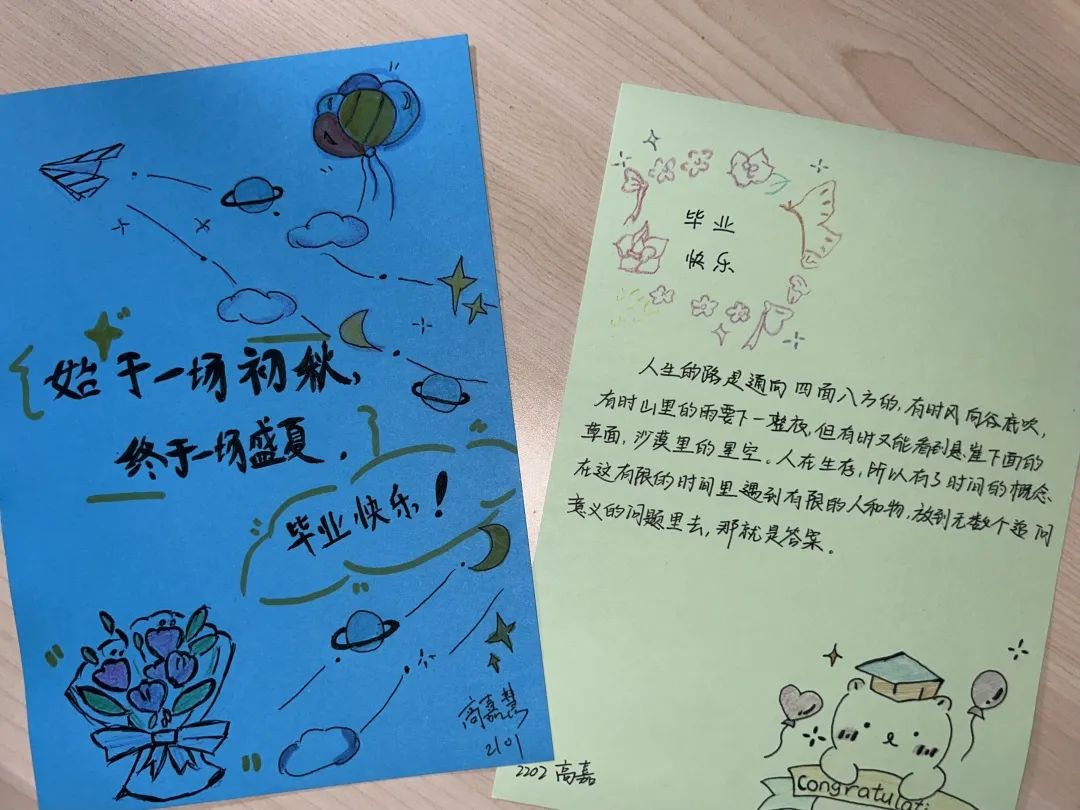 始于一场初秋,
终于一场盛夏.
毕业快乐!
高嘉慧
2101
毕业
快乐
人生的路是通向四面八方的,有时风向谷底吹,
有时山里的雨要下一整夜,但有时又能看到悬崖下面的
草面,沙漠里的星空。人在生存,所以有了时间的概念
在这有限的时间里遇到有限的人和物,放到无数个追问
意义的问题里去,那就是答案。
2202 高嘉
Congratulati